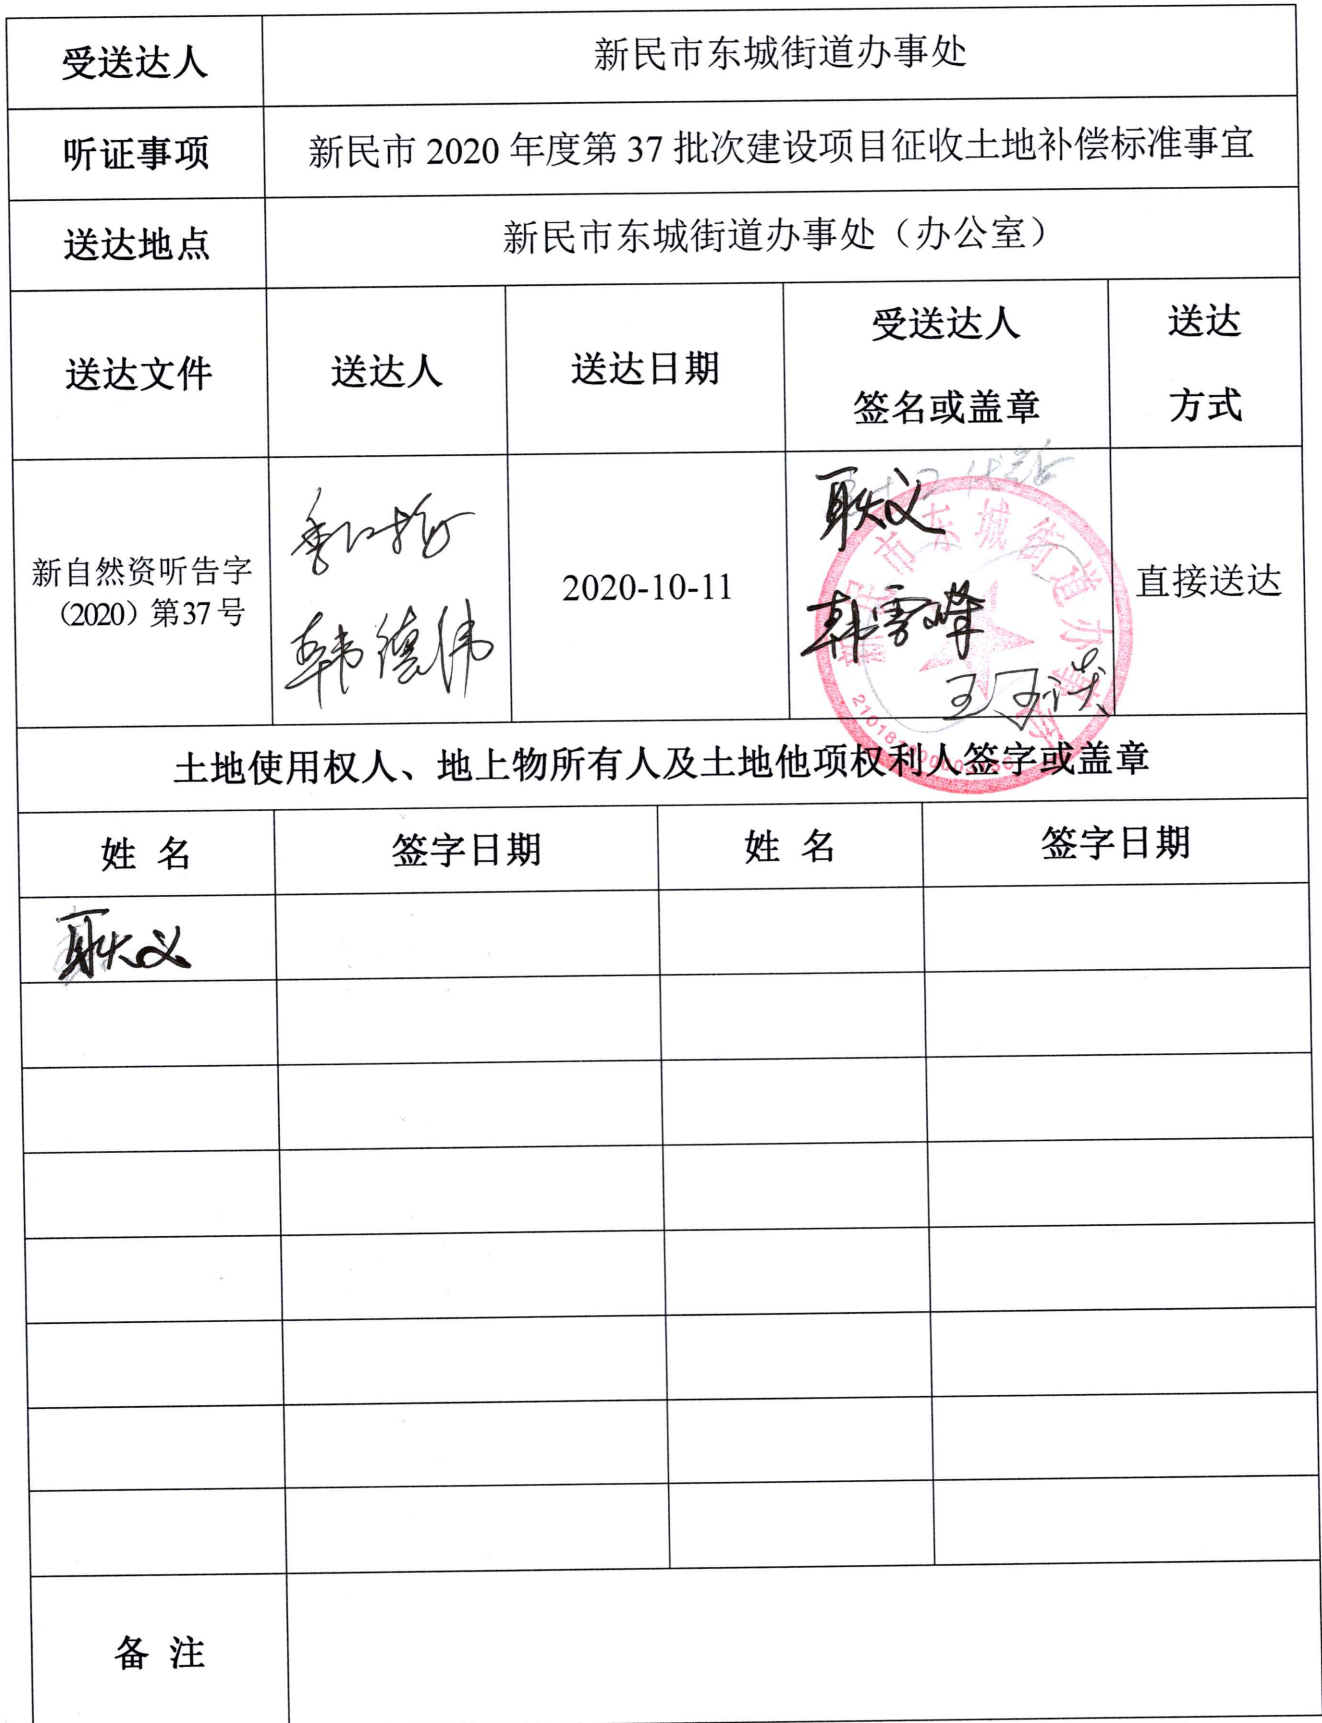 受送达人
新民市东城街道办事处
听证事项
新民市 2020 年度第 37 批次建设项目征收土地补偿标准事宜
送达地点
新民市东城街道办事处（办公室）
送达文件
送达人
送达日期
受送达人
签名或盖章
送达
方式
新自然资听告字
（2020）第37号
韩德伟
2020-10-11
耿义
韩雪峰
新民市东城街道办事处
直接送达
土地使用权人、地上物所有人及土地他项权利人签字或盖章
姓 名
签字日期
姓 名
签字日期
耿义
备 注